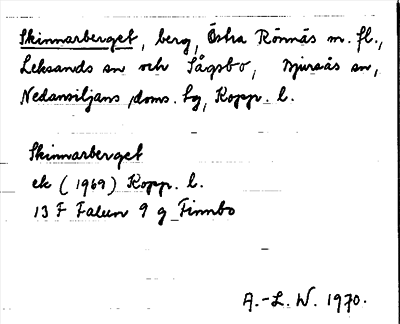 Skinnarberget, berg, Östra Rönnäs m. fl.,
Leksands sn och Sågsbo, Bjursås sn,
Nedansiljans doms. lg, Kopp. l.
Skinnarberget
ek (1969) Kopp. l.
13 F Falun 9 g Finnbo
A.-L. W. 1970.